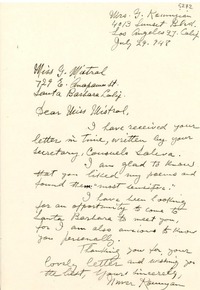 Mrs. G. Kasunjian
4913 Sunset Blvd.
Los Angeles 27, Calif
July 29. 948
Miss G. Mistral
729 E. Anapamu St.
Santa Barbara, Calif.
Dear Miss Mistral,
I have received your
letter in time, written by your
Secretary, Consuelo Saleva.
I am glad to know
that you liked my poems and
found them "most sensitive."
I have been looking
for an opportunity to come to
Santa Barbara to meet you,
for I am also anxious to know
you personally.
Thanking you for your
lovely letter and wishing you
the best, Yours Sincerely,